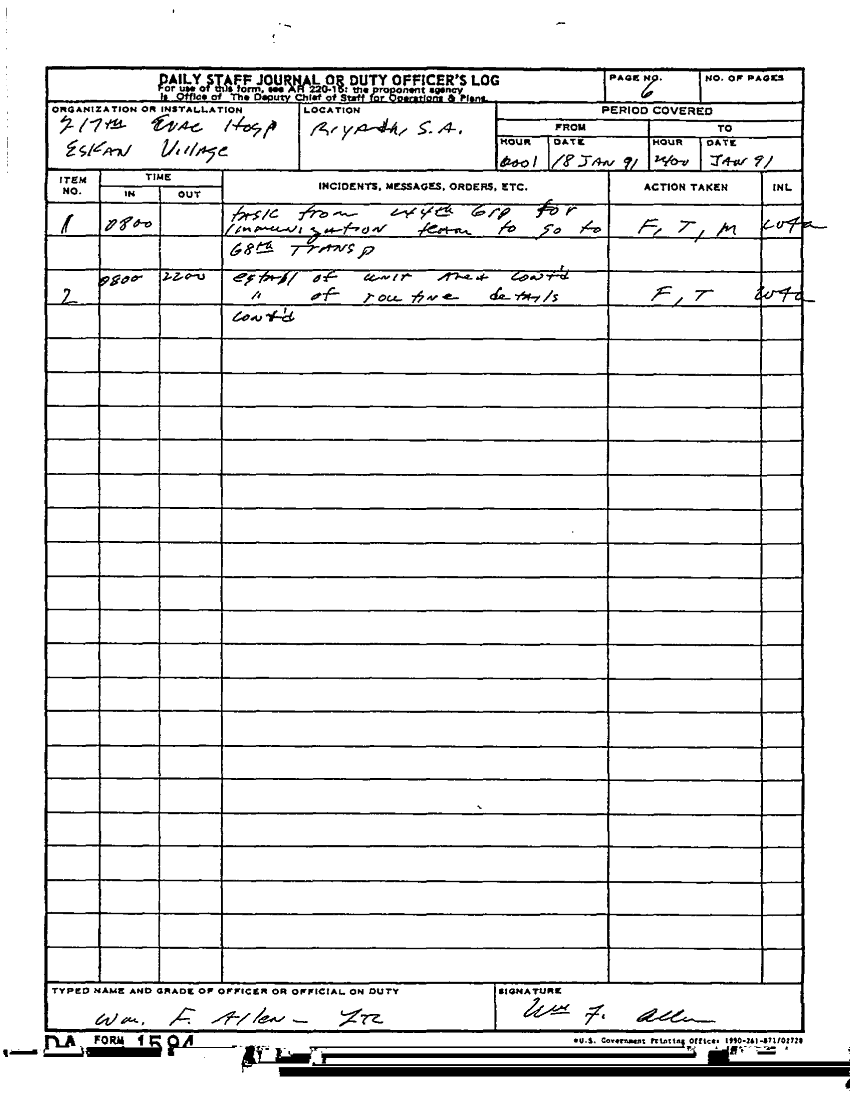 DAILY STAFF JOURNAL OR DUTY OFFICER'S LOG
For use of this form, see AR 220-15; the proponent agency
is Office of The Deputy Chief of Staff for Operations & Plans.
PAGE NO.
6
NO. OF PAGES
ORGANIZATION OR INSTALLATION
217th Evac Hosp
Eskan Village
LOCATION
Riyadh, S.A.
PERIOD COVERED
FROM
TO
HOUR
DATE
HOUR
DATE
0001
18 JAN 91
2400
JAN 91
ITEM NO.
TIME
IN
OUT
INCIDENTS, MESSAGES, ORDERS, ETC.
ACTION TAKEN
INL
1 0800 from 44th Grp for
immunization team to go to F, T, M wfa
68th Transp
0800 2200 establ of unit area cont'd
2 " of routine details F, T wfa
cont'd
TYPED NAME AND GRADE OF OFFICER OR OFFICIAL ON DUTY
Wm. F. Allen - LTC
SIGNATURE
Wm F. Allen
DA FORM 1594
*U.S. Government Printing Office: 1990-261-871/02728